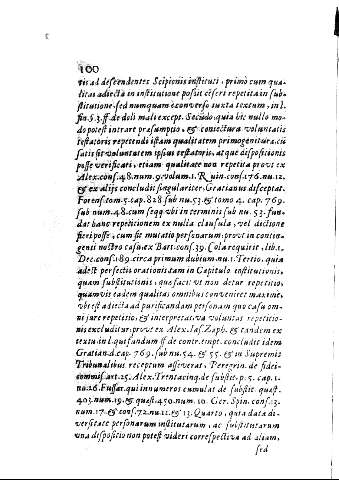 100
tis ad descendentes Scipionis instituti, primò cum qua-
litas adiecta in institutione possit cēseri repetita in sub-
stitutione, sed numquam è converso iuxta textum, in l.
fin. §. 3. ff. de doli mali except. Secūdo, quia hîc nullo mo-
do potest intrare præsumptio, & coniectura voluntatis
testatoris repetendi istam qualitatem primogenitura, cū
satis sit voluntatem ipsius testatoris, atque dispositionis
posse verificati, etiam qualitate non repetita prout ex
Alex. cons. 48. num. 9. volum. 1. Ruin. cons. 176. nu. 12.
& ex alijs concludit singulariter, Gratianus disceptat.
Forens. tom. 5. cap. 828. sub nu. 53. & tomo 4. cap. 769.
sub num. 48. cum seqq. vbi in terminis sub nu. 53. fun-
dat hanc repetitionem ex nulla clausula, vel dictione
fieri posse, cum sit mutatio personarum; prout in contin-
genti nostro casu, ex Bart. cons. 39. Cola requirit, lib. 1.
Dec. cons. 189. circa primum dubium. nu. 1. Tertio, quia
adest perfectio orationis tam in Capitulo institutionis,
quam substitutionis, quæ facit vt non detur repetitio,
quamvis eadem qualitas omnibus conveniret maximè,
vbi est adiecta ad purificandam personam quo casu om-
ni jure repetitio, & interpretativa voluntas repetitio-
nis excluditur, prout ex Alex. Ias. Zaph. & tandem ex
textu in l. quis undum ff. de contr. empt. concludit idem
Gratian. d. cap. 769. sub nu. 54. & 55. & in Supremis
Tribunalibus receptum asseverat, Peregrin. de fidei-
commiss. art. 25. Alex. Trentacinq. de substit. p. 5. cap. 1.
no. 26. Fusar. qui innumeros cumulat de substit. quæst.
403. num. 19. & quæst. 450. num. 10. Ger. Spin. cons. 13.
num. 17. & cons. 72. nu. 11. & 13. Quarto, quia data di-
versitate personarum institutarum, ac substitutarum
vna dispositio non potest videri correspectiva ad aliam,
sed